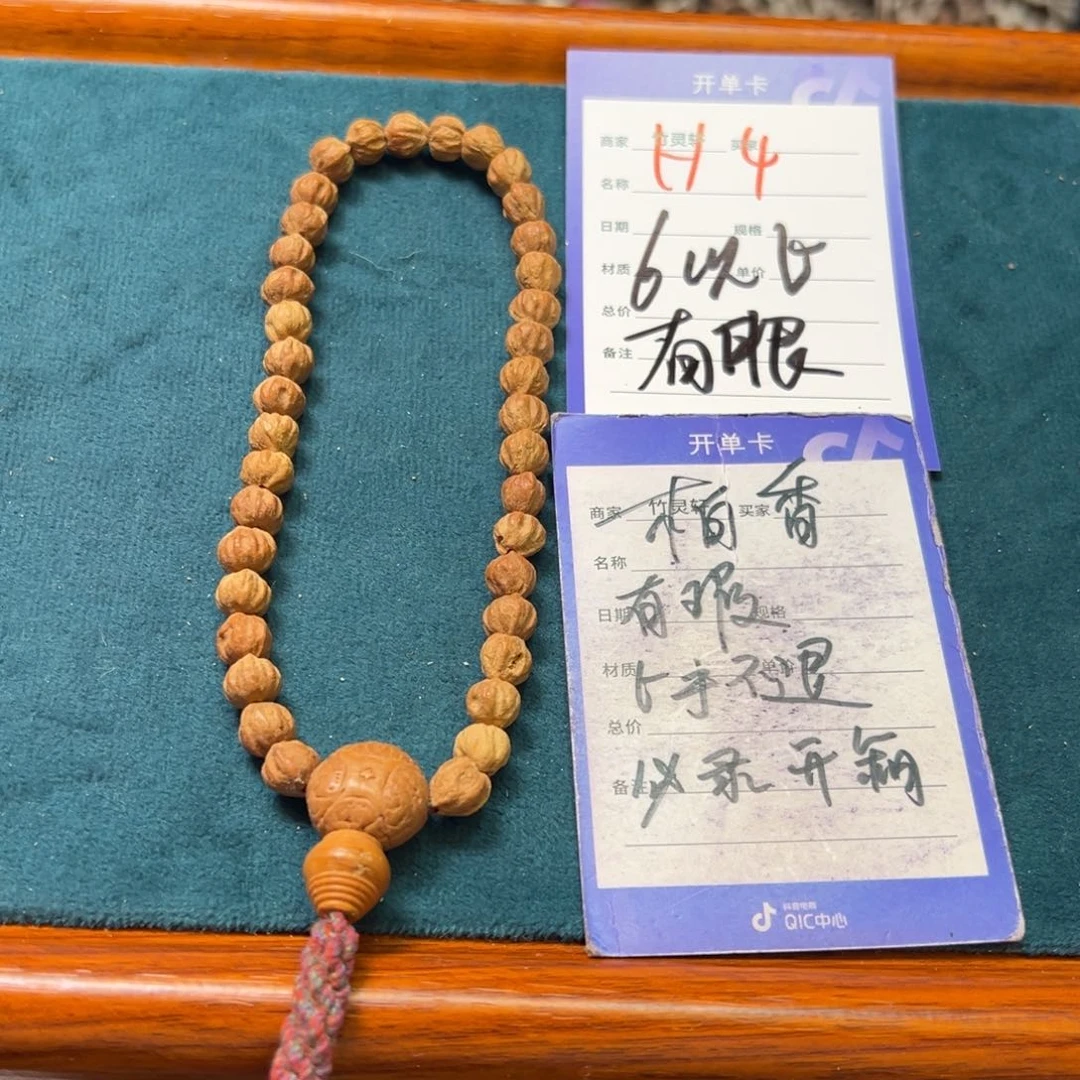 开单卡
商家 竹灵轩 买家
H4
名称
日期 规格
6以下
材质 单价
总价
有眼
备注
开单卡
商家 竹灵轩 买家
柏香
名称
日期 规格
有瑕
材质 单价
下手不退
总价
备注
必录开箱
抖音电商
QIC中心